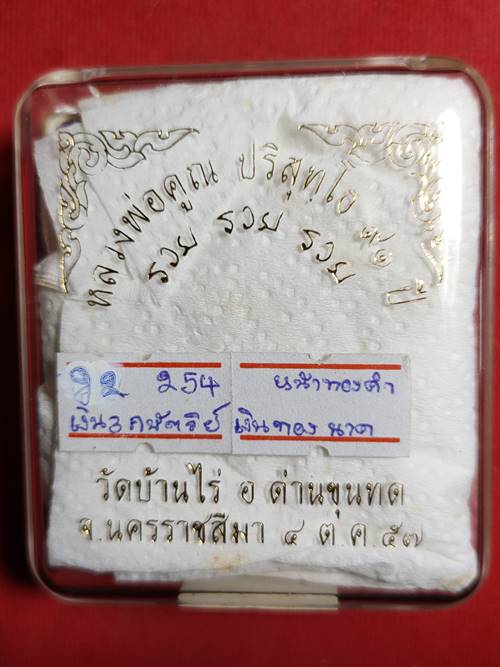 หลวงพ่อคูณ ปริสุทฺโธ ๙๑ ปี
รวย รวย รวย
92 254
เงิน3กษัตริย์
หน้าทองคำ
เงินทองนาค
วัดบ้านไร่ อ ด่านขุนทด
จ.นครราชสีมา ๔ ต ค ๕๗